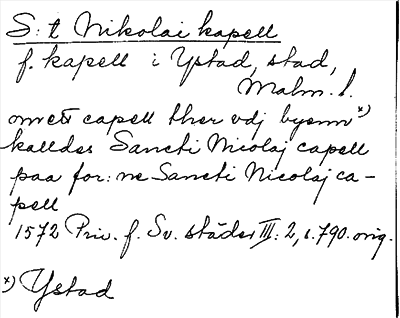 S:t Nikolai kapell
f. kapell i Ystad, stad,
Malm. l.
omett capell ther vdj byenn x)
kalldes Sancti Nicolaj capell
paa for: ne Sancti Nicolaj ca-
pell
1572 Priv. f. Sv. städer III: 2, s. 790. orig.
x) Ystad